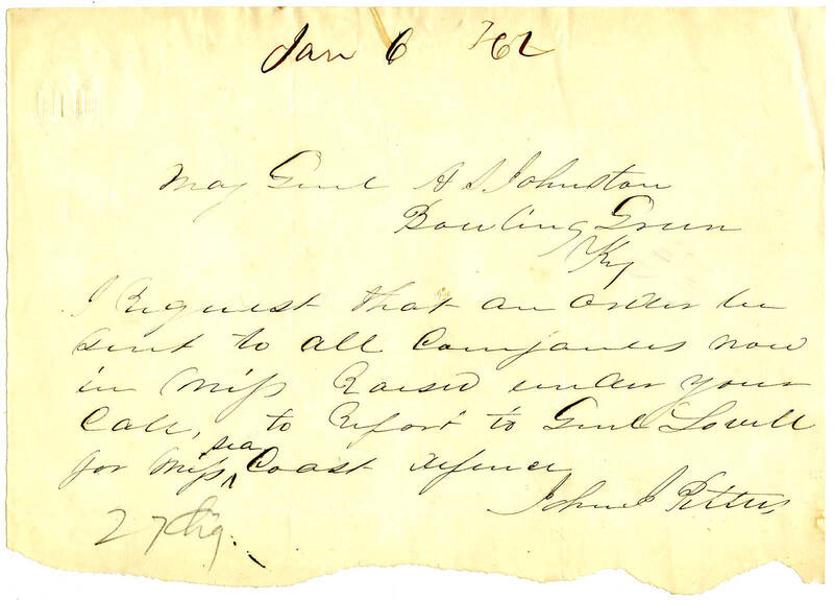 Jan 6 /62
Maj Genl A S Johnston
Bowling Green
Ky
I Request that an order be
sent to all Companies now
in Miss Raised under your
Call, to Report to Genl Lovell
for Miss sea Coast defence
John J Pettus
27